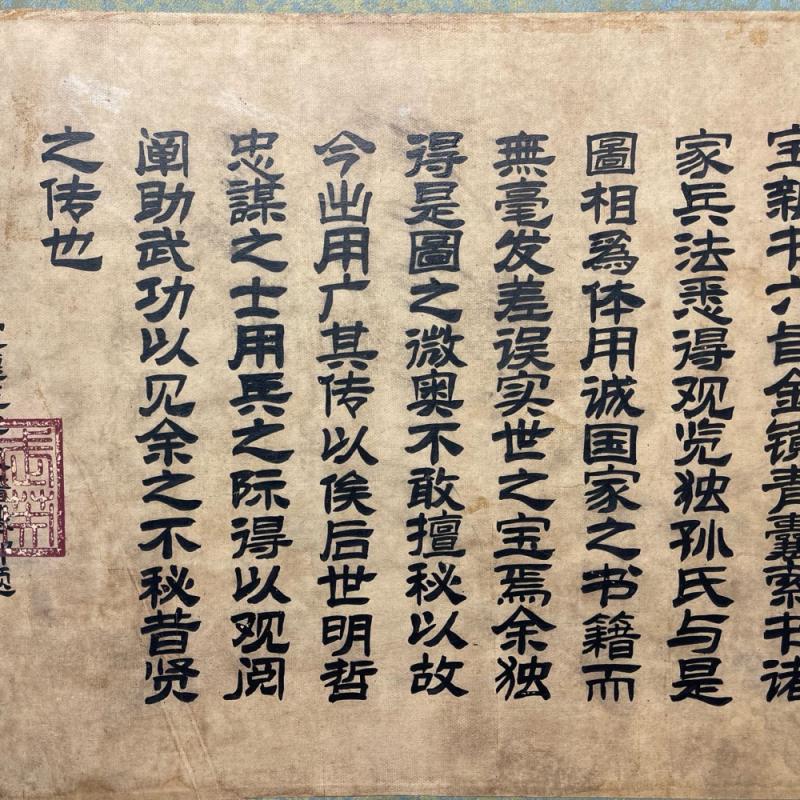 宝新书六旨金镜青囊索书诸
家兵法悉得观览独孙氏与是
圖相爲体用诚国家之书籍而
無毫发差误实世之宝焉余独
得是圖之微奥不敢擅秘以故
今出用广其传以俟后世明哲
忠謀之士用兵之际得以观阅
阐助武功以见余之不秘昔贤
之传也
题